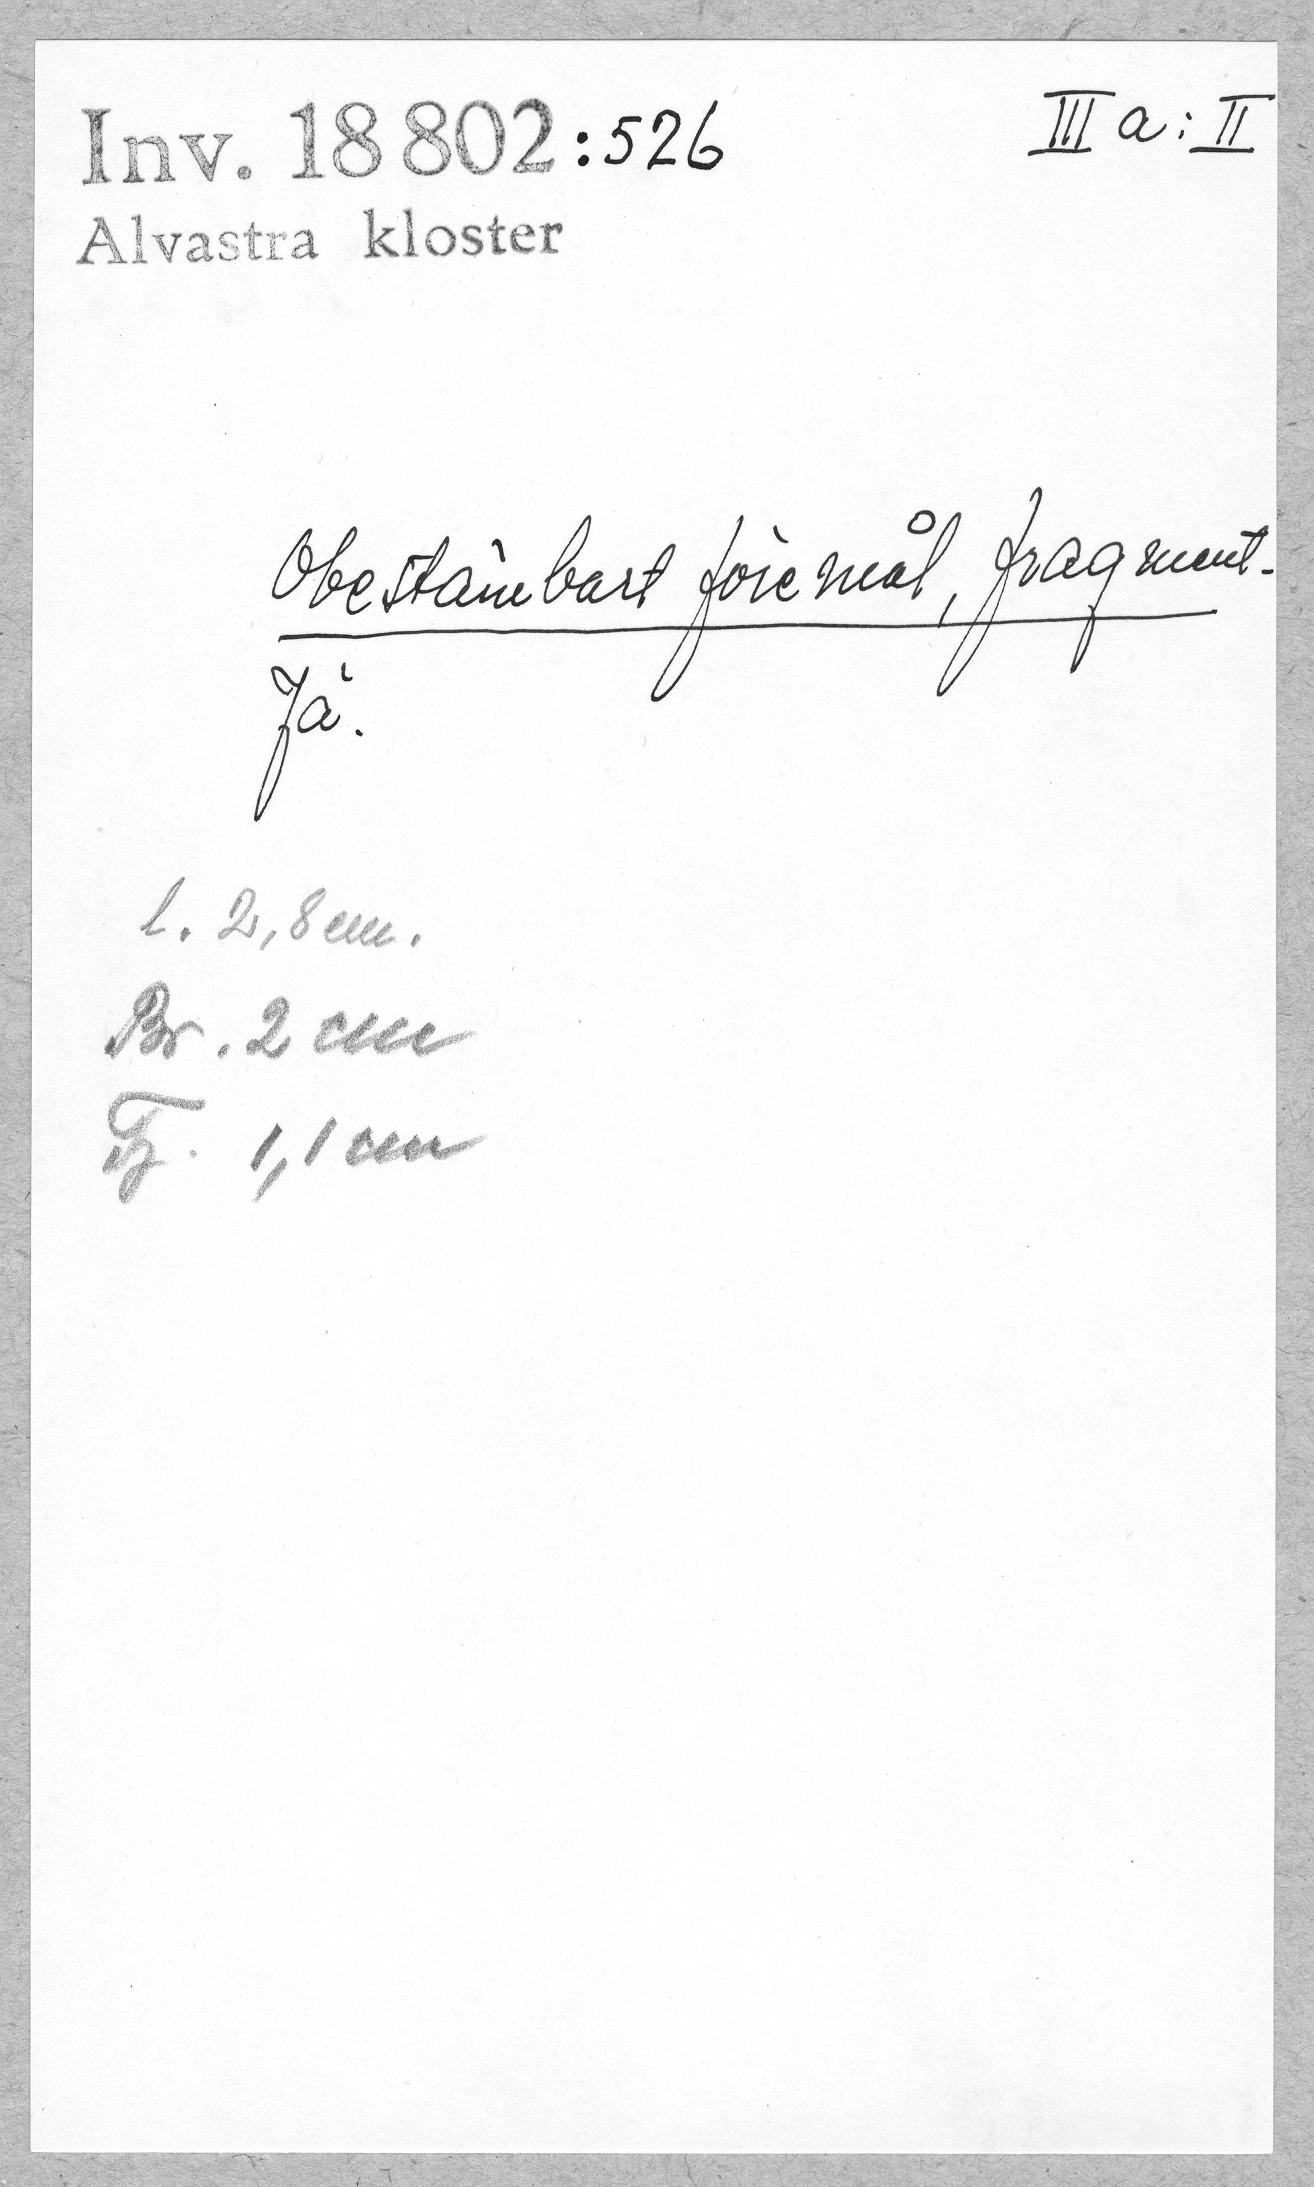 Inv. 18 802:526 III a: II
Alvastra kloster
Obestämbart föremål, fragment.
Jä.
l. 2,8 cm.
Br. 2 cm
Tj. 1,1 cm